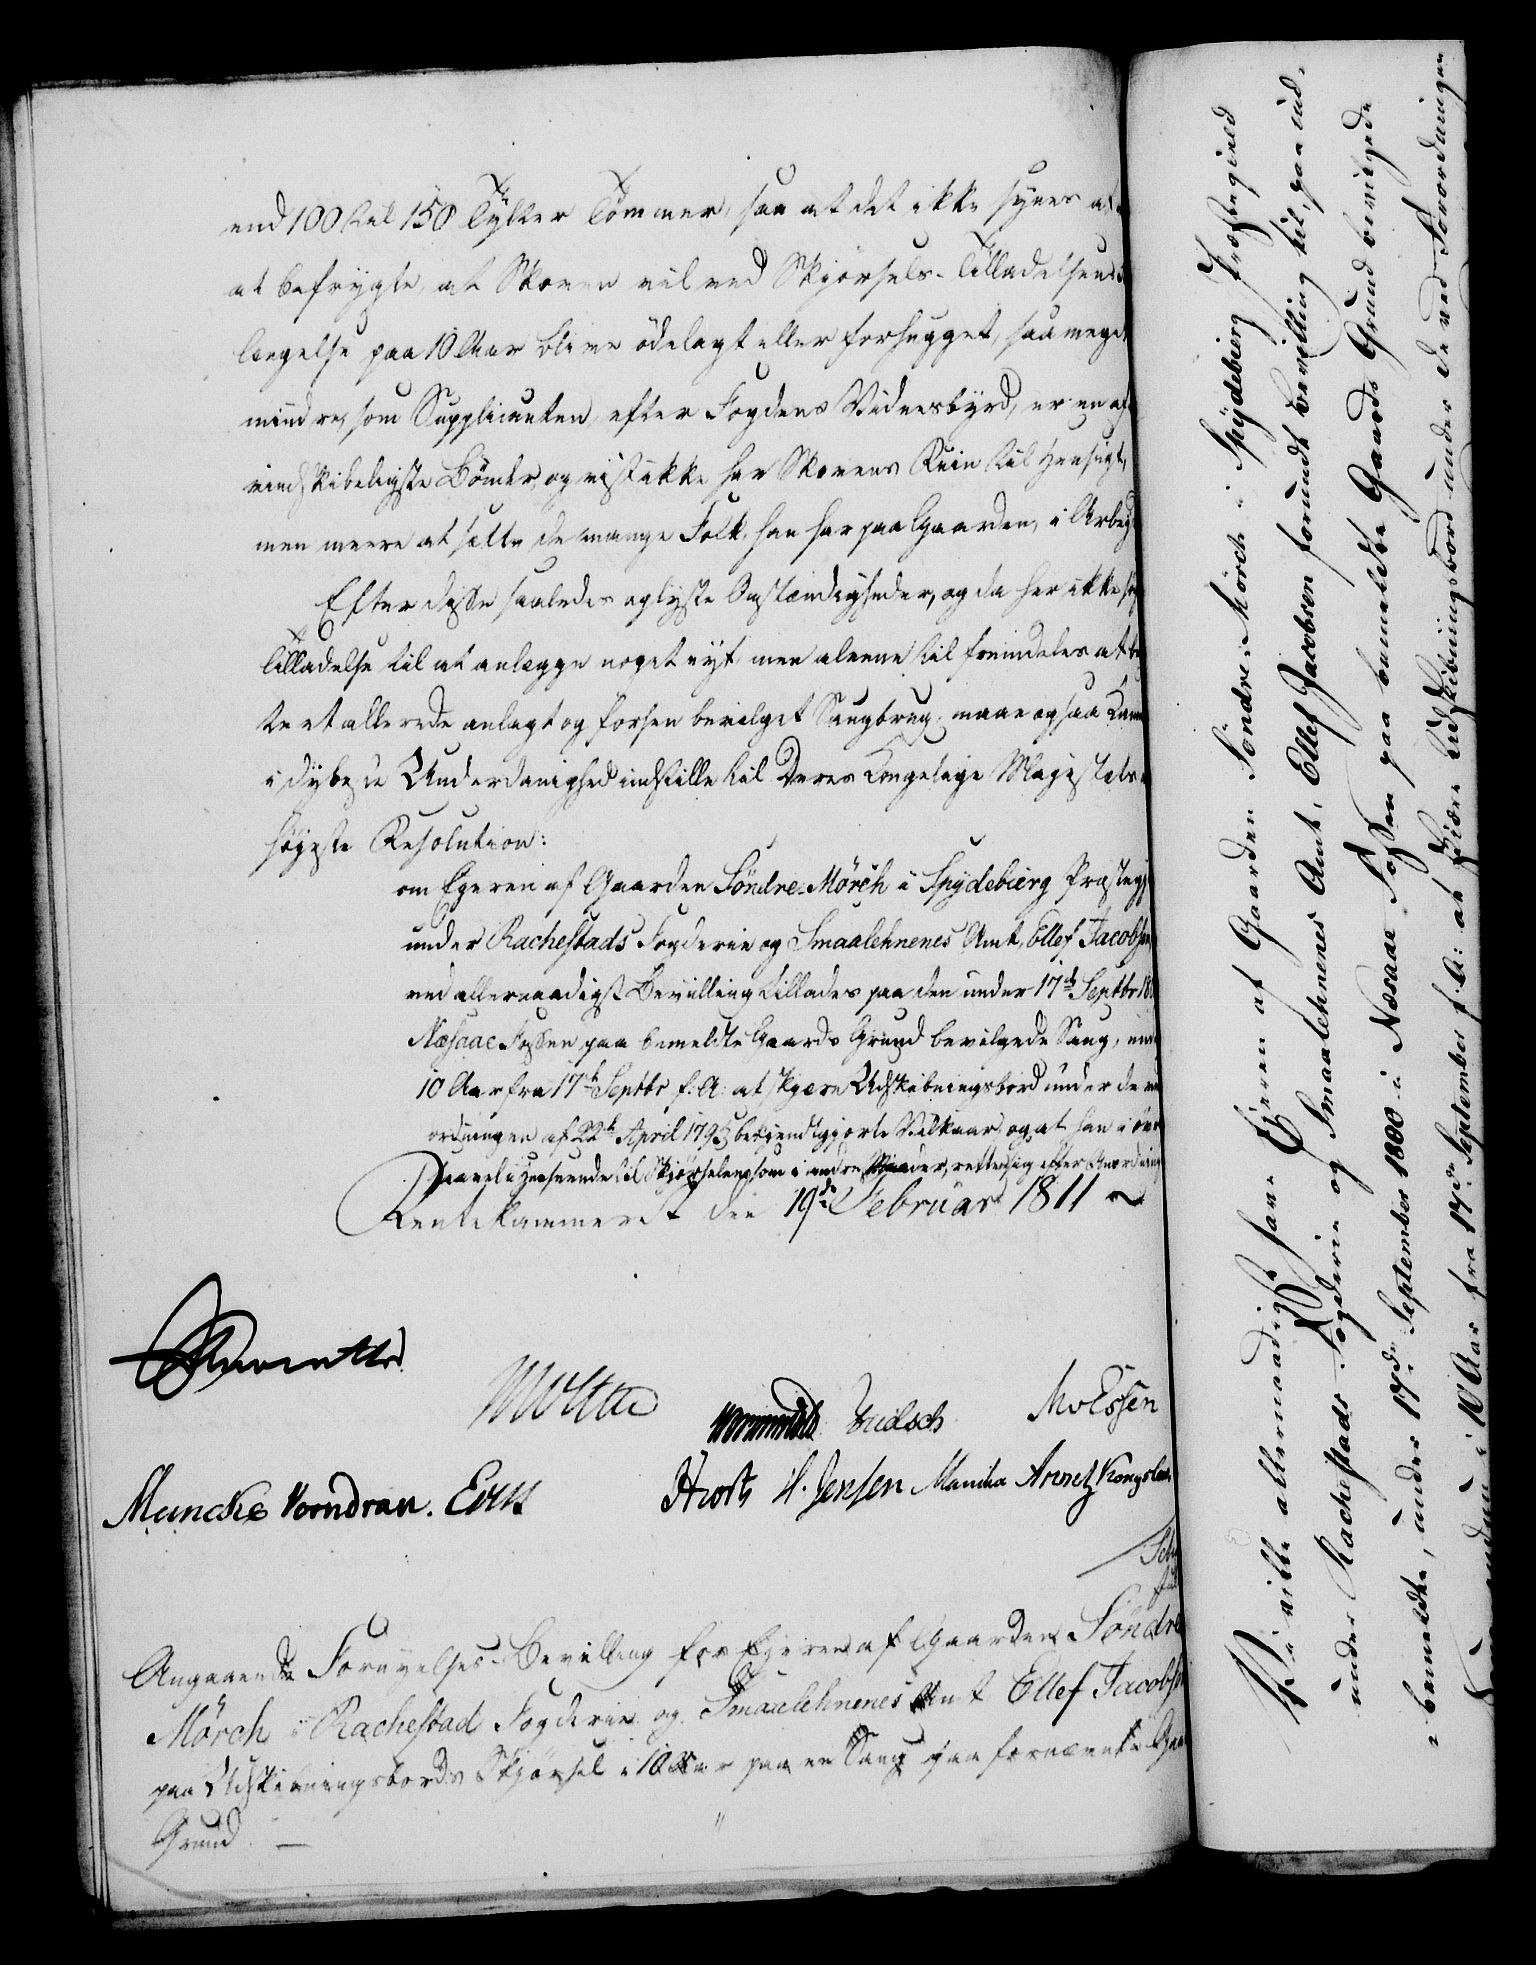 end 100 til 150 Tylter Tømmer, saa at det ikke synes at
at befrygte, at Skoven vil ved Skjørsels-Tilladelsens
længelse paa 10 Aar blive ödelagt eller forhugget, saa meget
mindre, som Supplicanten, efter Fogdens Vidnesbyrd, er en af
vindskibeligste Bönder, og vist ikke har Skovens Ruin til Hensigt,
men meere at sætte de mange Folk, han har paa Gaarden, i Arbeyd
Efter disse saaledes oplyste Omstændigheder, og da her ikke
Tilladelse til at anlægge noget nyt, men aleene til fremdeles at
te et allerede anlagt og forhen bevilget Saugbrug; maae ogsaa Cam
i dybeste Underdanighed indstille til Deres Kongelige Majestæts
høyeste Resolution:
om Eyeren af Gaarden Söndre-Mörch i Spydebierg Præstegj
under Rachestads Fogderie og Smaalehnenes Amt, Ellef Jacobsen
ved allernaadigst Bevilling tillades paa den under 17de Septbr 180
Næsaae Fossen paa bemeldte Gaards Grund bevilgede Saug,
10 Aar fra 17de Septbr f. A: at skjære Udskibningsbord under de
ordningen af 22de April 1795 bekjendtgjorte Vilkaar, og at han i øv
saavel i Henseende til Skjørselen som i andre Maader, retter sig efter Anordning
Rentekammeret den 19de Februar 1811 ~
Moltke
Knudsch
MvEssen
Muncke Vorndran.
H. Jensen Manthe Arntz Kongslev
Angaaende Fornyelses-Bevilling for Eyeren af Gaarden Söndre
Mörch i Rachestad Fogderie og Smaalehnenes Amt Ellef Jacobsen
paa Udskibningsbords Skjørsel i 10 Aar paa en Saug paa fornævnte Gaar
Grund. —
Vi ville allernaadigst have Eyeren af Gaarden Söndre-Mörch i Spydebierg Præstegield
under Rachestads Fogderie og Smaalehnenes Amt, Ellef Jacobsen forundt Bevilling til, paa ind-
bemeldte, under 17de September 1800 i Næsaae Fossen paa bemeldte Gaards Grund bevilgede
i 10 Aar fra 17de September f. A: at skiære Udskibningsbord under de ved Forordningen